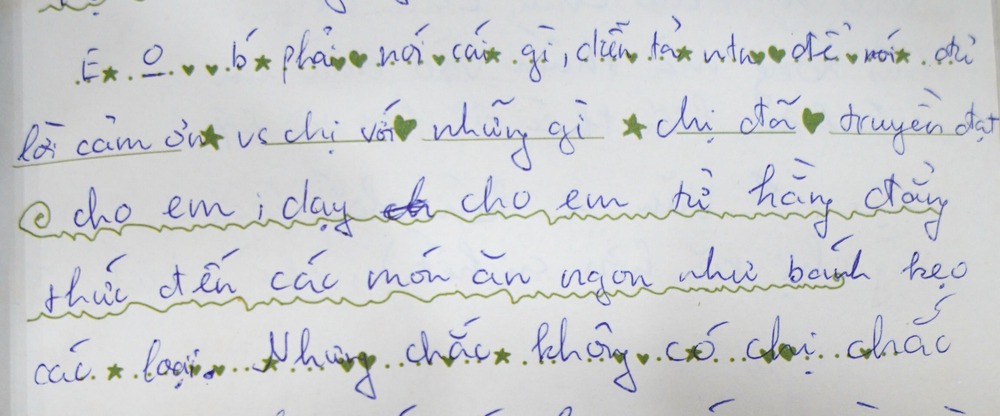 E O b phải nói cái gì, diễn tả ntn để nói đủ
lời cảm ơn vs chị với những gì chị đã truyền đạt
cho em, dạy cho em từ hằng đẳng
thức đến các món ăn ngon như bánh kẹo
các loại. Nhưng chắc không có chị chắc